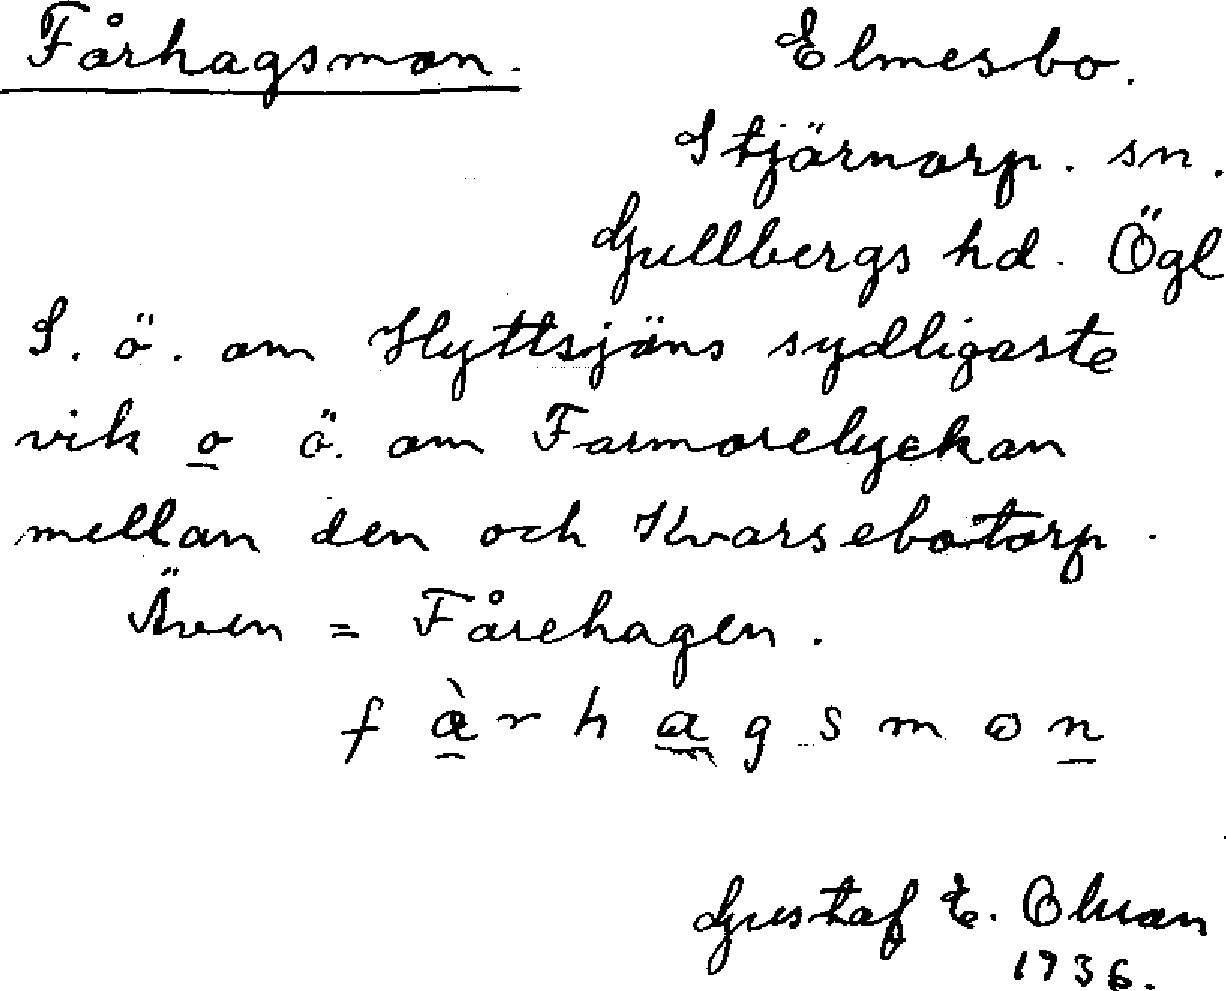 Fårhagsmon. Elmesbo.
Stjärnorp. sn.
Gullbergs hd. Ögl
S. ö. om Hyttsjöns sydligaste
vik o ö. om Farmorelyckan
mellan den och Kvarsebotorp.
Även = Fårehagen.
f å̀ r h a g s m o n
Gustaf E. Olsson
1936.